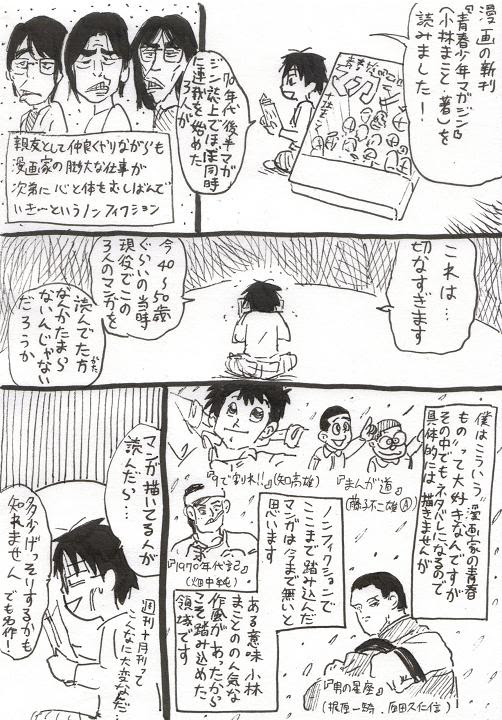 漫画の新刊
『青春少年マガジン』
(小林まこと・著)を
読みました!
青春少年
マガジン
70年代後半マガ
ジン誌上でほぼ同時
に連載を始めた
親友として仲良くやりながらも
漫画家の膨大な仕事が
次第に心と体をむしばんで
いき…というノンフィクション
これは…
切なすぎます
今40〜50歳
ぐらいの当時
現役でこの
3人のマンガを
読んでた方
がた
なんかたまら
ないんじゃない
だろうか
僕はこういう"漫画家の青春
もの"って大好きなんですが
その中でもネタバレになるので
具体的には描きませんが
『まんが道』
(藤子不二雄Ⓐ)
(知高雄)
ノンフィクションで
ここまで踏み込んだ
マンガは今まで無いと
思います
『1970年代記』
(畑中純)
ある意味小林
まことの人気な
作風があったから
こそ踏み込めた
領域です
『男の星座』
(梶原一騎・原田久仁信)
マンガ描いてる人が
読んだら…
多少げっそりするかも
知れません でも名作!
週刊+月刊って
こんなに大変なんだ…